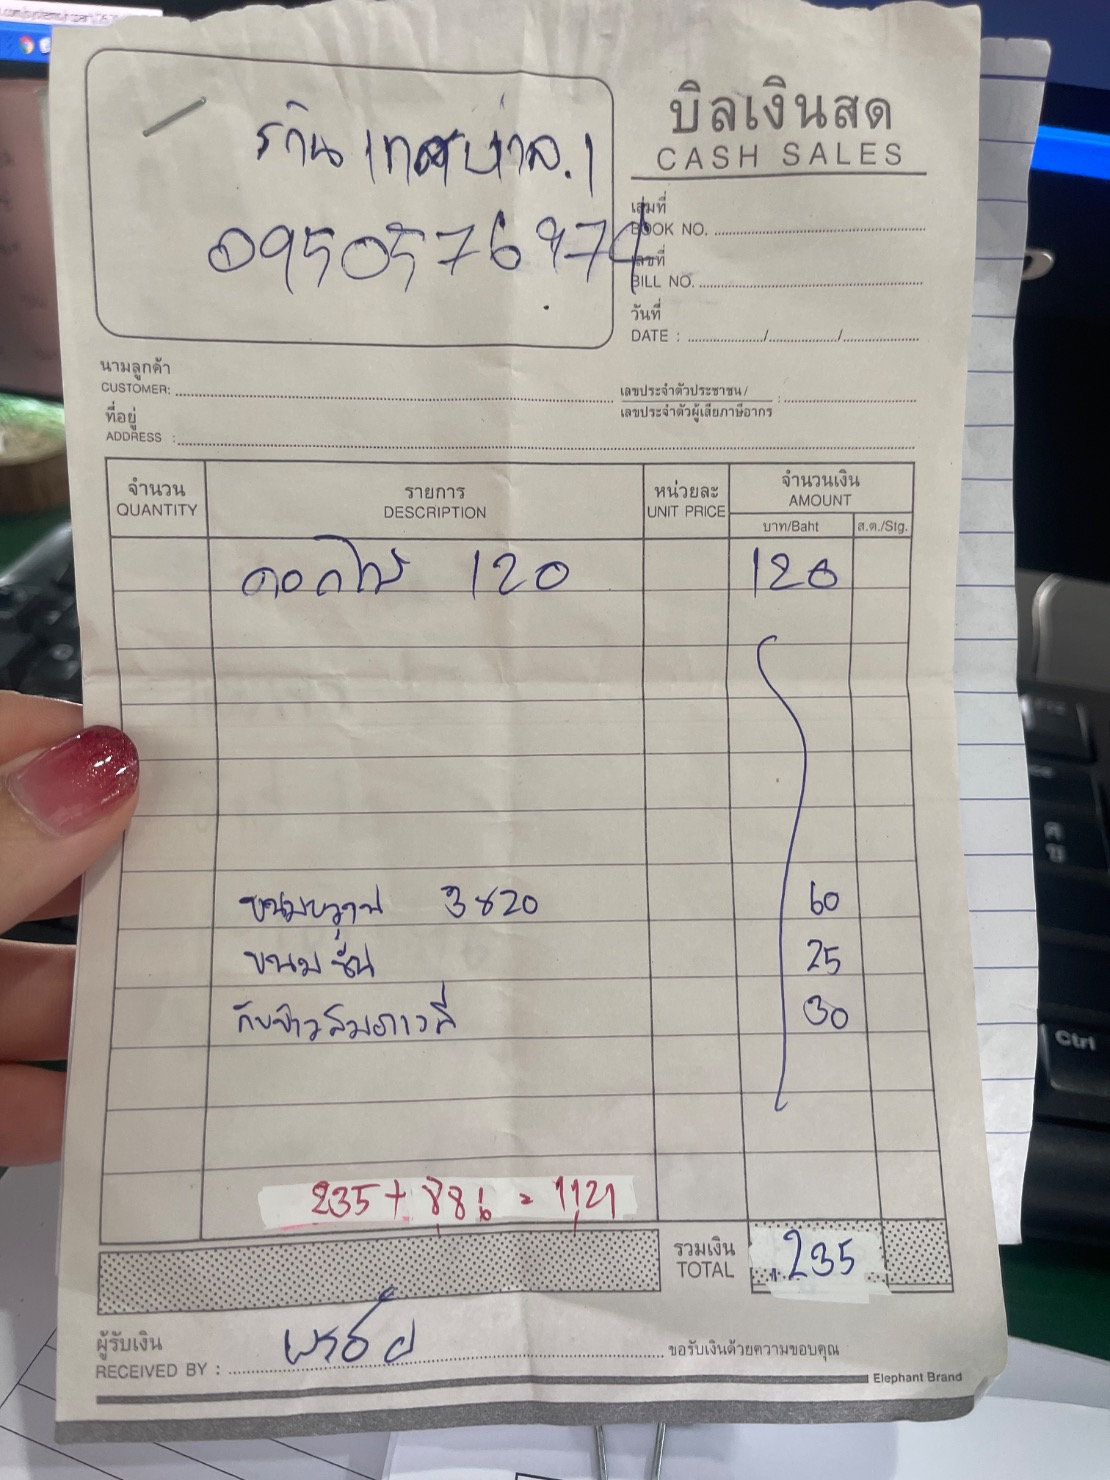 ร้าน เทศบาล.1
0950576974
บิลเงินสด
CASH SALES
เล่มที่
BOOK NO.
เลขที่
BILL NO.
วันที่
DATE : / /
นามลูกค้า
CUSTOMER:
เลขประจำตัวประชาชน /
เลขประจำตัวผู้เสียภาษีอากร :
ที่อยู่
ADDRESS :
จำนวน รายการ หน่วยละ จำนวนเงิน
QUANTITY DESCRIPTION UNIT PRICE AMOUNT
บาท/Baht ส.ต./Stg.
ดอกไม้ 120 120
ขนมหวาน 3x20 60
ขนมชั้น 25
กับข้าว 30
235 + 886 = 1121
รวมเงิน
TOTAL 235
ผู้รับเงิน
RECEIVED BY :
ขอรับเงินด้วยความขอบคุณ
Elephant Brand
Ctrl